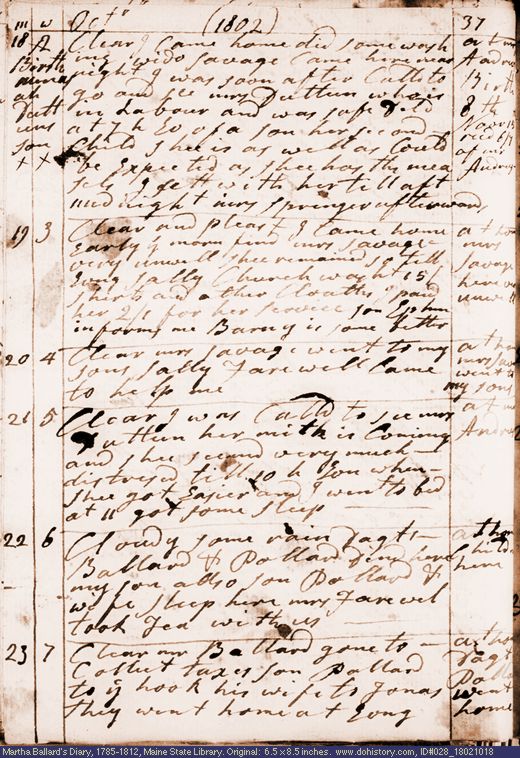 m w Oct.r (1802) 37
18 A Clear I Came home did some wash
Birth my wido Savage Came here near
night I was soon after Calld to
go and see mrs Duttun who is
in Labour and was safe Deld
at 7 h Ev of a son her second
son Child shee is as well as Could
X X be Expected as shee has the mea
sels I slept with her till aft
midnight mrs Springer afterwards
Birth
8th
19 3 Clear and pleast I Came home
Early s morn find mrs Savage
very unwell shee remained so till
Evng Sally Church washt 15
shirts and other Cloaths I paid
her 2/ for her service son Ephm
informs me Barny is some better
at home
mrs
Savage
here
unwell
20 4 Clear mrs Savage went to my
sons Sally Farewell Came
to help me
at home
mrs Sav
went to
my sons
21 5 Clear I was Calld to see mrs
Duttun her milk is Coming
and shee seemd very much
distresd till 10 h Evn when
shee got Easier and I went to bed
at 11 got some sleep
at mr
22 6 Cloudy some rain Dagts
Ballard & Pollard dind here
my son allso son Pollard &
wife sleep here mrs Farewel
took Tea with us
at home
here
23 7 Clear mr Ballard gone to
Collect taxes son Pollard
to y hook his wife to Jonas
they went home at Evng
at home
Dagt
Pollard
went
home
Martha Ballard's Diary, 1785-1812, Maine State Library. Original: 6.5 x 8.5 inches. www.dohistory.com, ID#028_18021018